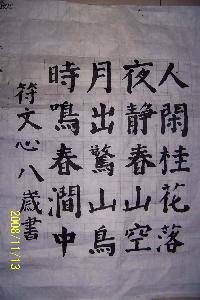 人閑桂花落
夜靜春山空
月出驚山鳥
時鳴春澗中
符文心八歲書
2008/11/13